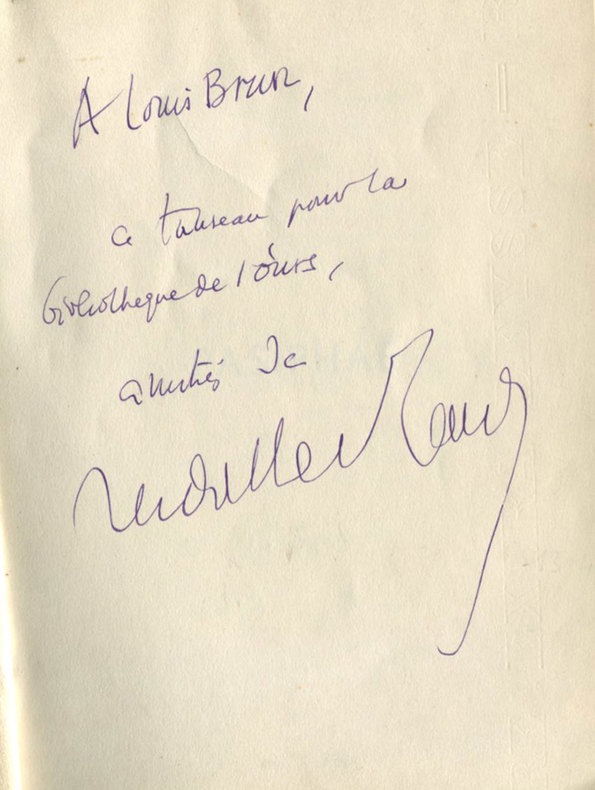 A Louis Brun,
ce taureau pour la
bibliotheque de l'ours,
amitiés de